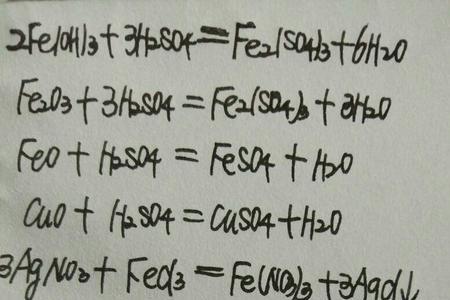 2Fe(OH)3+3H2SO4=Fe2(SO4)3+6H2O
Fe2O3+3H2SO4=Fe2(SO4)3+3H2O
FeO+H2SO4=FeSO4+H2O
CuO+H2SO4=CuSO4+H2O
3AgNO3+FeCl3=Fe(NO3)3+3AgCl↓